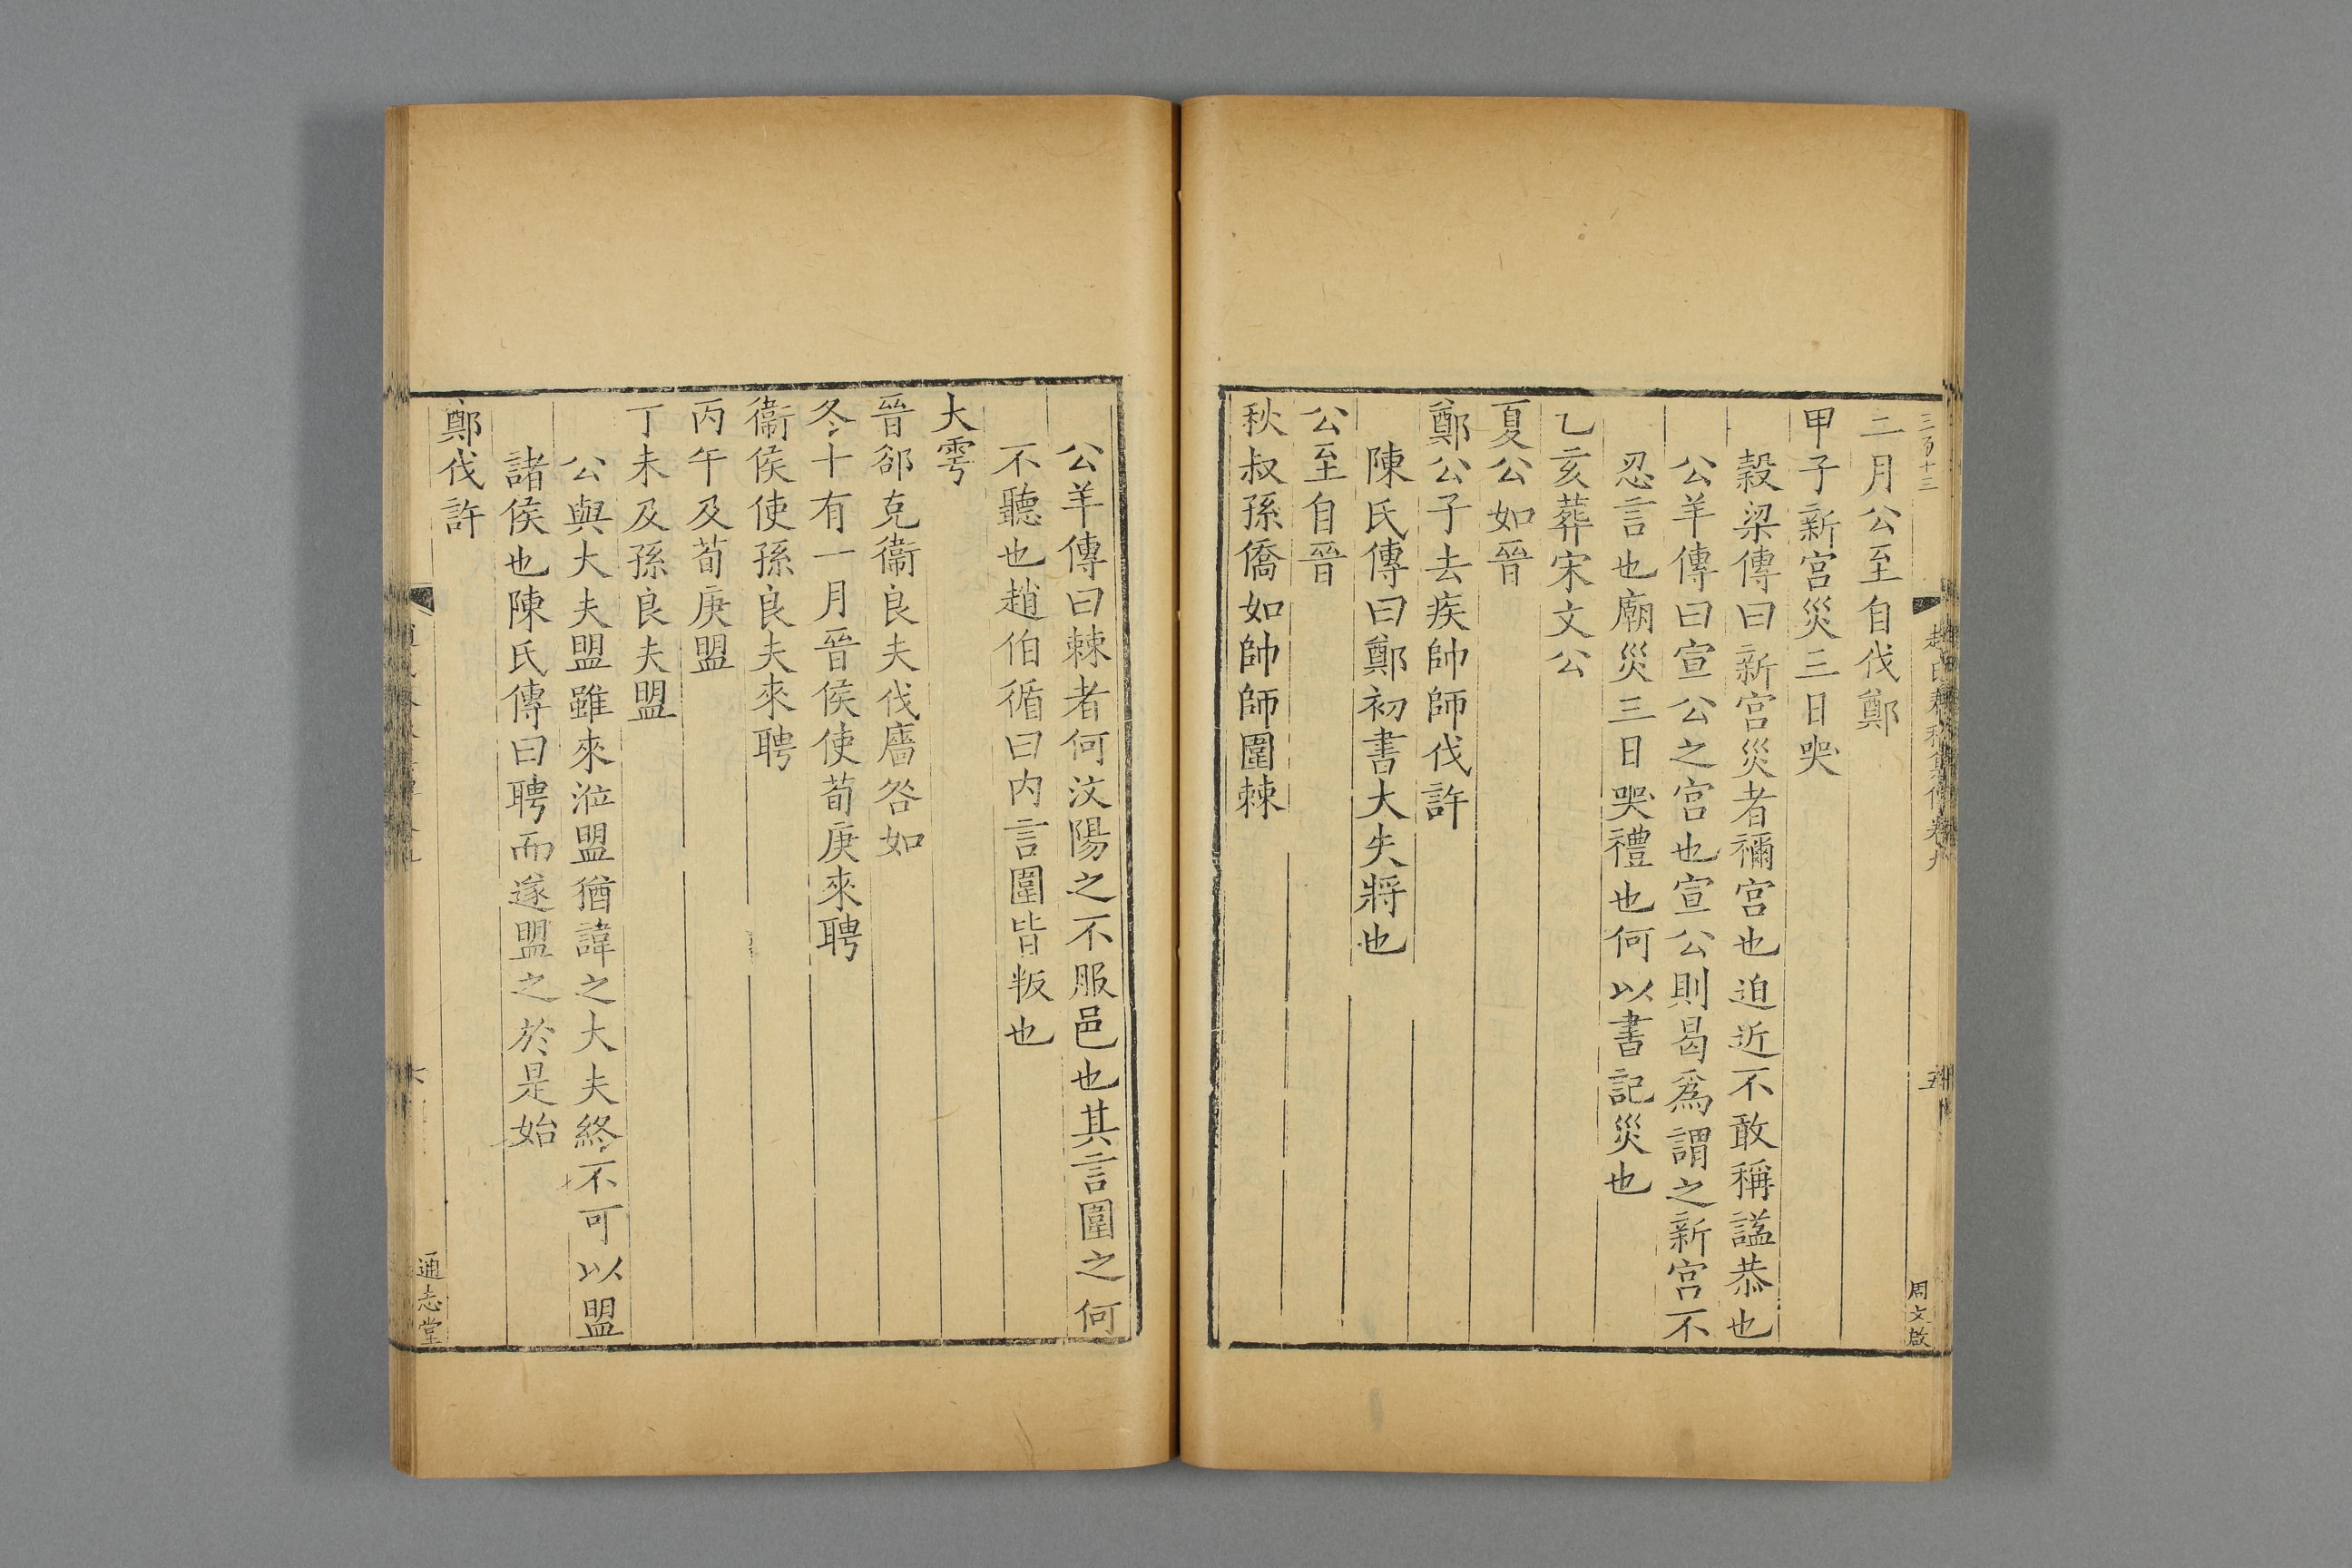 三百十三
趙氏春秋集傳卷九
五
周文啟
二月公至自伐鄭
甲子新宮災三日哭
穀梁傳曰新宮災者禰宮也迫近不敢稱謚恭也
公羊傳曰宣公之宮也宣公則曷爲謂之新宮不
忍言也廟災三日哭禮也何以書記災也
乙亥葬宋文公
夏公如晉
鄭公子去疾帥師伐許
陳氏傳曰鄭初書大夫將也
公至自晉
秋叔孫僑如帥師圍棘
公羊傳曰棘者何汶陽之不服邑也其言圍之何
不聽也趙伯循曰内言圍皆叛也
大雩
晉郤克衞良夫伐廧咎如
冬十有一月晉侯使荀庚來聘
衞侯使孫良夫來聘
丙午及荀庚盟
丁未及孫良夫盟
公與大夫盟雖來涖盟猶諱之大夫終不可以盟
諸侯也陳氏傳曰聘而遂盟之於是始
鄭伐許
通志堂